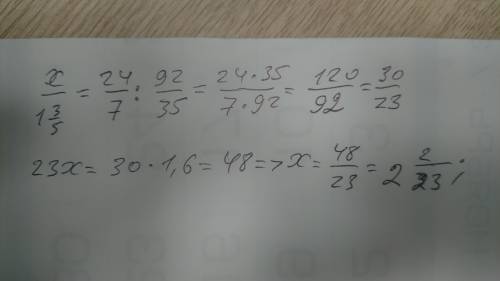 x/1 3/5 = 24/7 : 92/35 = 24·35/7·92 = 120/92 = 30/23
23x = 30·1,6 = 48 => x = 48/23 = 2 2/23;